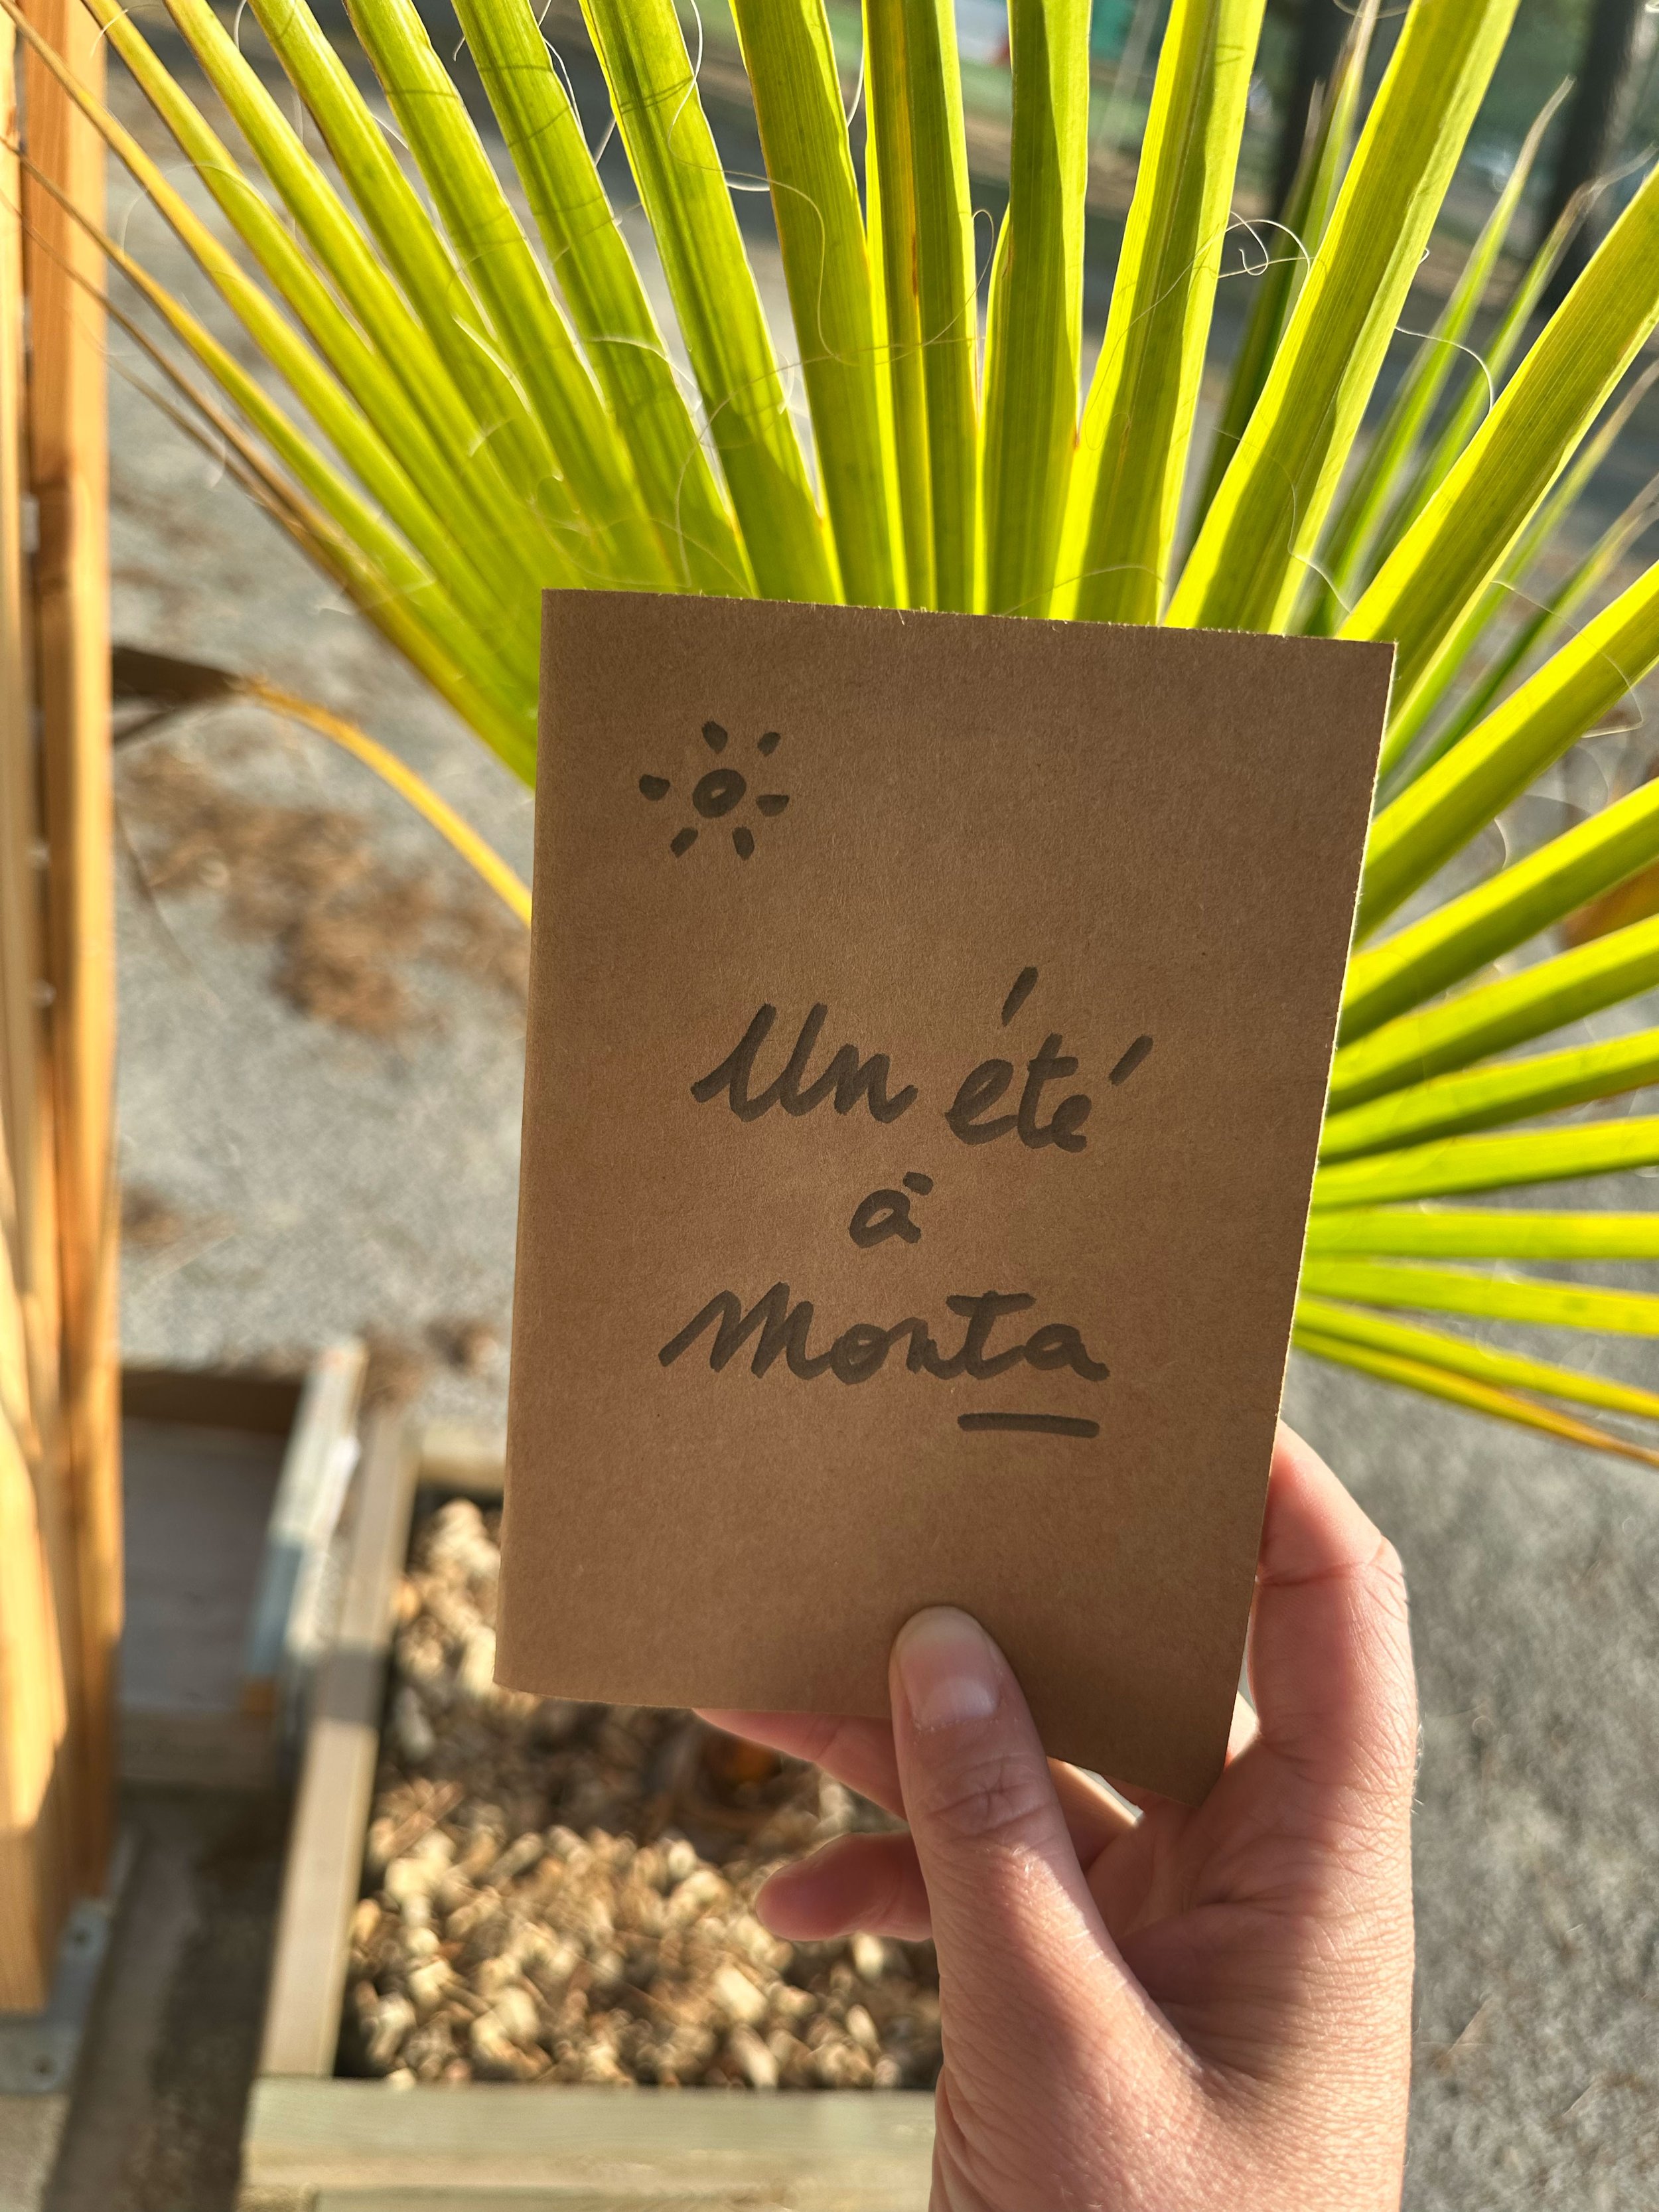 Un été
à
Monta